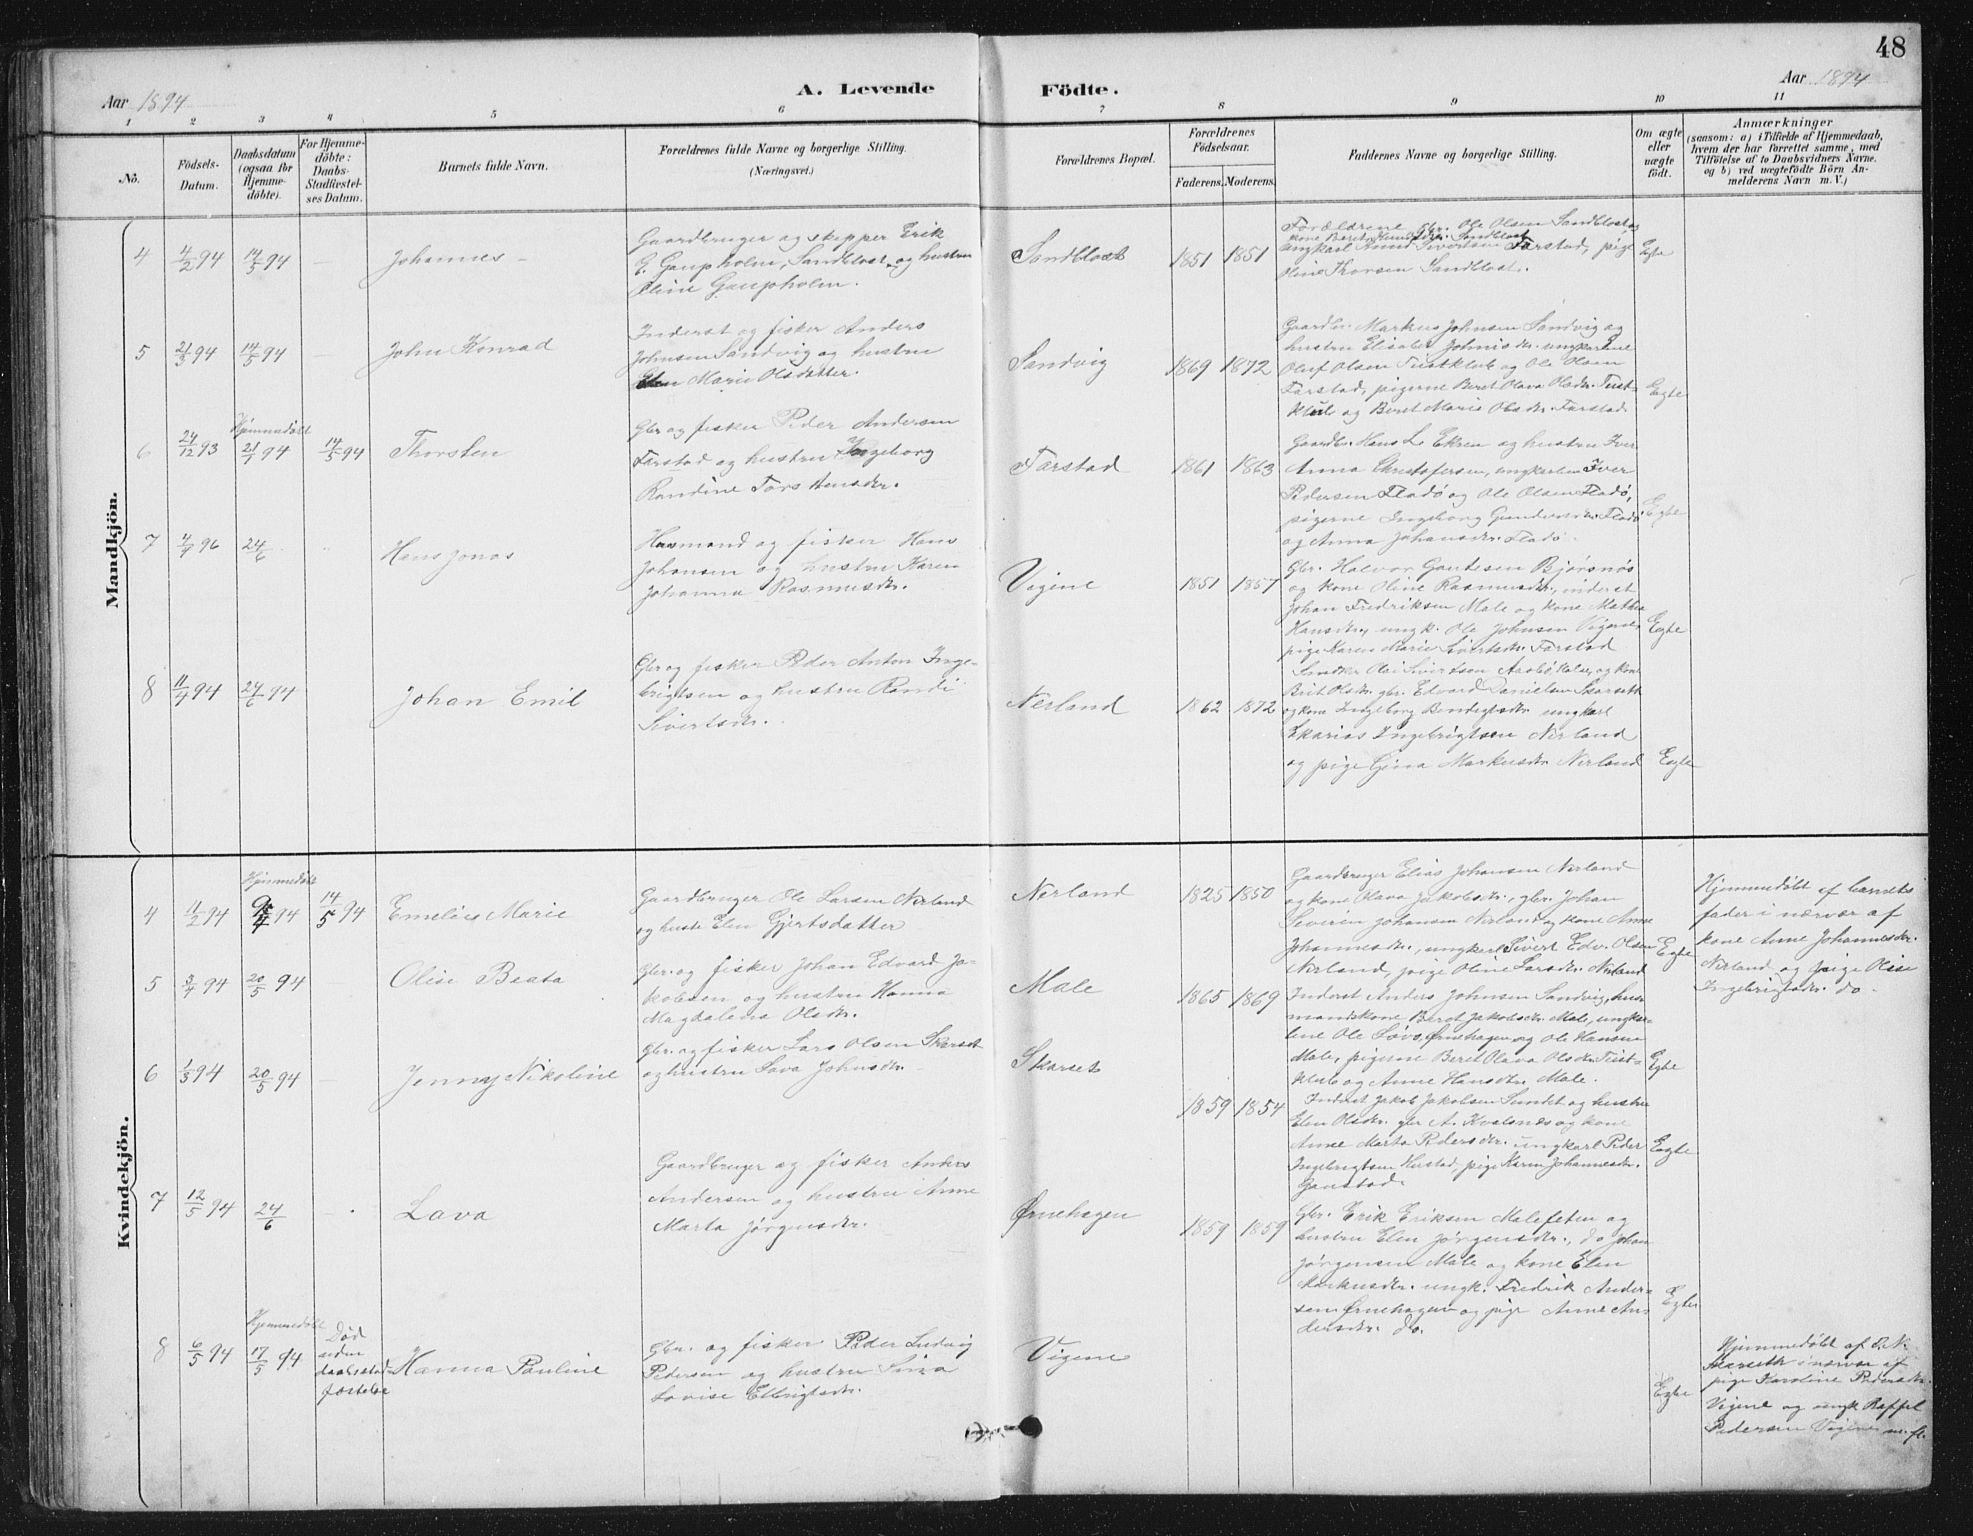 48
Aar 1894
A. Levende
Födte.
Aar 1894
1 2 3 4 5 6 7 8 9 10 11
No.
Födsels-
Datum.
Daabsdatum
(ogsaa for
Hjemme-
döbte).
For Hjemme-
döbte:
Daabs-
Stadfæstel-
ses Datum.
Barnets fulde Navn.
Forældrenes fulde Navne og borgerlige Stilling.
(Næringsvei.)
Forældrenes Bopæl.
Forældrenes
Födselsaar.
Faderens. Moderens.
Faddernes Navne og borgerlige Stilling.
Om ægte
eller
uægte
födt.
Anmærkninger
(saasom: a) i Tilfælde af Hjemmedaab,
hvem der har forrettet samme, med
Tilföielse af to Daabsvidners Navne,
og b) ved uægtefödte Börn An-
melderens Navn m. V.)
Mandkjön.
4 4/2 94 14/5 94 — Johannes —
Gaardbruger og skipper Erik
E. Gaupholm, Sandblost og hustru
Oline Gaupholm.
Sandblost 1851 1851
Forældrene gbr. Ole Olsen Sandblost og
kone Beret
ungkarl Knud Sivertsen Farstad, pige
Oline Thorsen Sandblost.
Egte
5 21/3 94 14/5 94 — John Konrad
Inderst og fisker Anders
Johnsen Sandvig og hustru
Elen Marie Olsdatter.
Sandvig 1869 1872
Gaardbr. Markus Johnsen Sandvig og
hustru Elisabet Johnsdr. ungkarlene
Oluf Olsen Tustklub og Ole Olsen
Farstad, pigerne Beret Olava Olsdr. Tust-
klub og Beret Marie Olsdr. Farstad
Egte
6 24/12 93 Hjemmedöbt 21/1 94 14/5 94 Thorsten
Gbr og fisker Peder Andersen
Farstad og hustru Ingeborg
Randine Torstensdr.
Farstad 1861 1863
Gaardbr. Hans L. Ekren og hustru Iver
Anna Christofersen, ungkarlen Iver
Pedersen Fladö og Ole Olsen Fladö,
pigerne Ingeborg Gundersdr. Fladö
og Anna Johansdr. Fladö.
Egte
7 4/4 96 24/6 Hans Jonas
Husmand og fisker Hans
Johansen og hustru Karen
Johanna Rasmusdr.
Vigene 1851 1857
Gbr. Halvor Gautesen Bjørsnös
og kone Oline Rasmusdr., inderst
Johan Fredriksen Male og kone Mathea
Hansdr., ungk. Ole Johnsen Vigene,
pige Karen Marie Sivertsdr. Farstad
Egte
8 11/4 94 24/6 94 Johan Emil
Gbr og fisker Peder Anton Inge-
brigtsen og hustru Randi
Sivertsdr.
Nerland 1862 1872
Ole Sivertsen og kone
Brit Olsdr. gbr. Edvard Danielsen Skarseth
og kone Ingeborg Bendigtsdr. ungkarl
Skarias Ingebrigtsen Nerland
og pige Gina Markusdr. Nerland
Egte
Kvindekjön.
4 11/2 94 Hjemmedöbt 94 14/5 94 Emelie Marie
Gaardbruger Ole Larsen Nerland
og hustr Elen Gjertsdatter
Nerland 1825 1850
Gaardbruger Elias Johansen Nerland
og kone Olava Jakobsdr., gbr. Johan
Severin Johansen Nerland og kone Anne
Johannesdr., ungkarl Sivert Edv. Olsen
Nerland, pige Oline Larsdr. Nerland
Egte
Hjemmedöbt af barnets
fader i nærvær af
kone Anne Johannesdr.
Nerland og pige Olise
Ingebrigtsdr. do.
5 3/4 94 20/5 94 — Olise Beata
Gbr. og fisker Johan Edvard Ja-
kobsen og hustru Hanna
Magdalena Olsdr.
Male 1865 1869
Inderst Anders Johnsen Sandvig, hus-
mandskone Beret Jakobsdr. Male, ungkar-
lene Ole Ørnehagen og Ole Hansen
Male, pigerne Beret Olava Olsdr. Tust-
klub og Anne Hansdr. Male.
Egte
6 1/3 94 20/5 94 — Jenny Nikoline
Gbr. og fisker Lars Olsen Skarset
og hustru Lava Johnsdr.
Skarset 1859 1854
Inderst Jakob Jakobsen Sundet og hustru
Elen Olsdr. gbr A. Kvalsnes og kone
Anne Marta Pedersdr. ungkarl Peder
Ingebrigtsen Hustad, pige Karen Johannesdr.
Gaustad.
Egte
7 12/5 94 24/6 — Lava
Gaardbruger og fisker Anders
Andersen og hustru Anne
Marta Jörgensdr.
Ørnehagen 1859 1859
Gbr. Erik Eriksen Malefeten og
hustru Elen Jörgensdr., do Johan
Jörgensen Male og kone Elen
Markusdr. ungk. Fredrik Ander-
sen Ørnehagen og pige Anne An-
dersdr. do.
Egte
8 6/5 94 Hjemmedöbt 17/5 94 Död
uden
daabsstad-
fæstelse Hanna Pauline
Gbr. og fisker Peder Ludvig
Pedersen og hustru Sina
Lovise Ellingsdr.
Vigene
Egte
Hjemmedöbt af E. N.
Skarseth i nærvær af
pige Karoline Pedersdr.
Vigene og ungk Raffel
Pedersen Vigene m. fl.